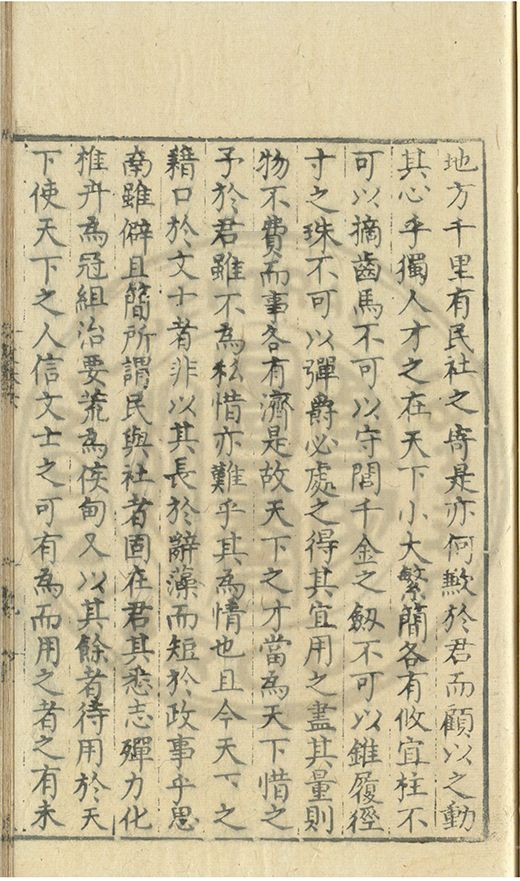 地方千里有民社之寄是亦何歉於君而顧以之動
其心乎獨人才之在天下小大繁簡各有攸宜柱不
可以摘齒馬不可以守閭千金之劒不可以錐履徑
寸之珠不可以彈爵必處之得其宜用之盡其量則
物不費而事各有濟是故天下之才當為天下惜之
予於君雖不為私惜亦難乎其為情也且今天下之
藉口於文士者非以其長於辭藻而短於政事乎思
南雖僻且簡所謂民與社者固在君其悉志殫力化
椎卉為冠組治要荒為侯甸又以其餘者待用於天
下使天下之人信文士之可有為而用之者之有未